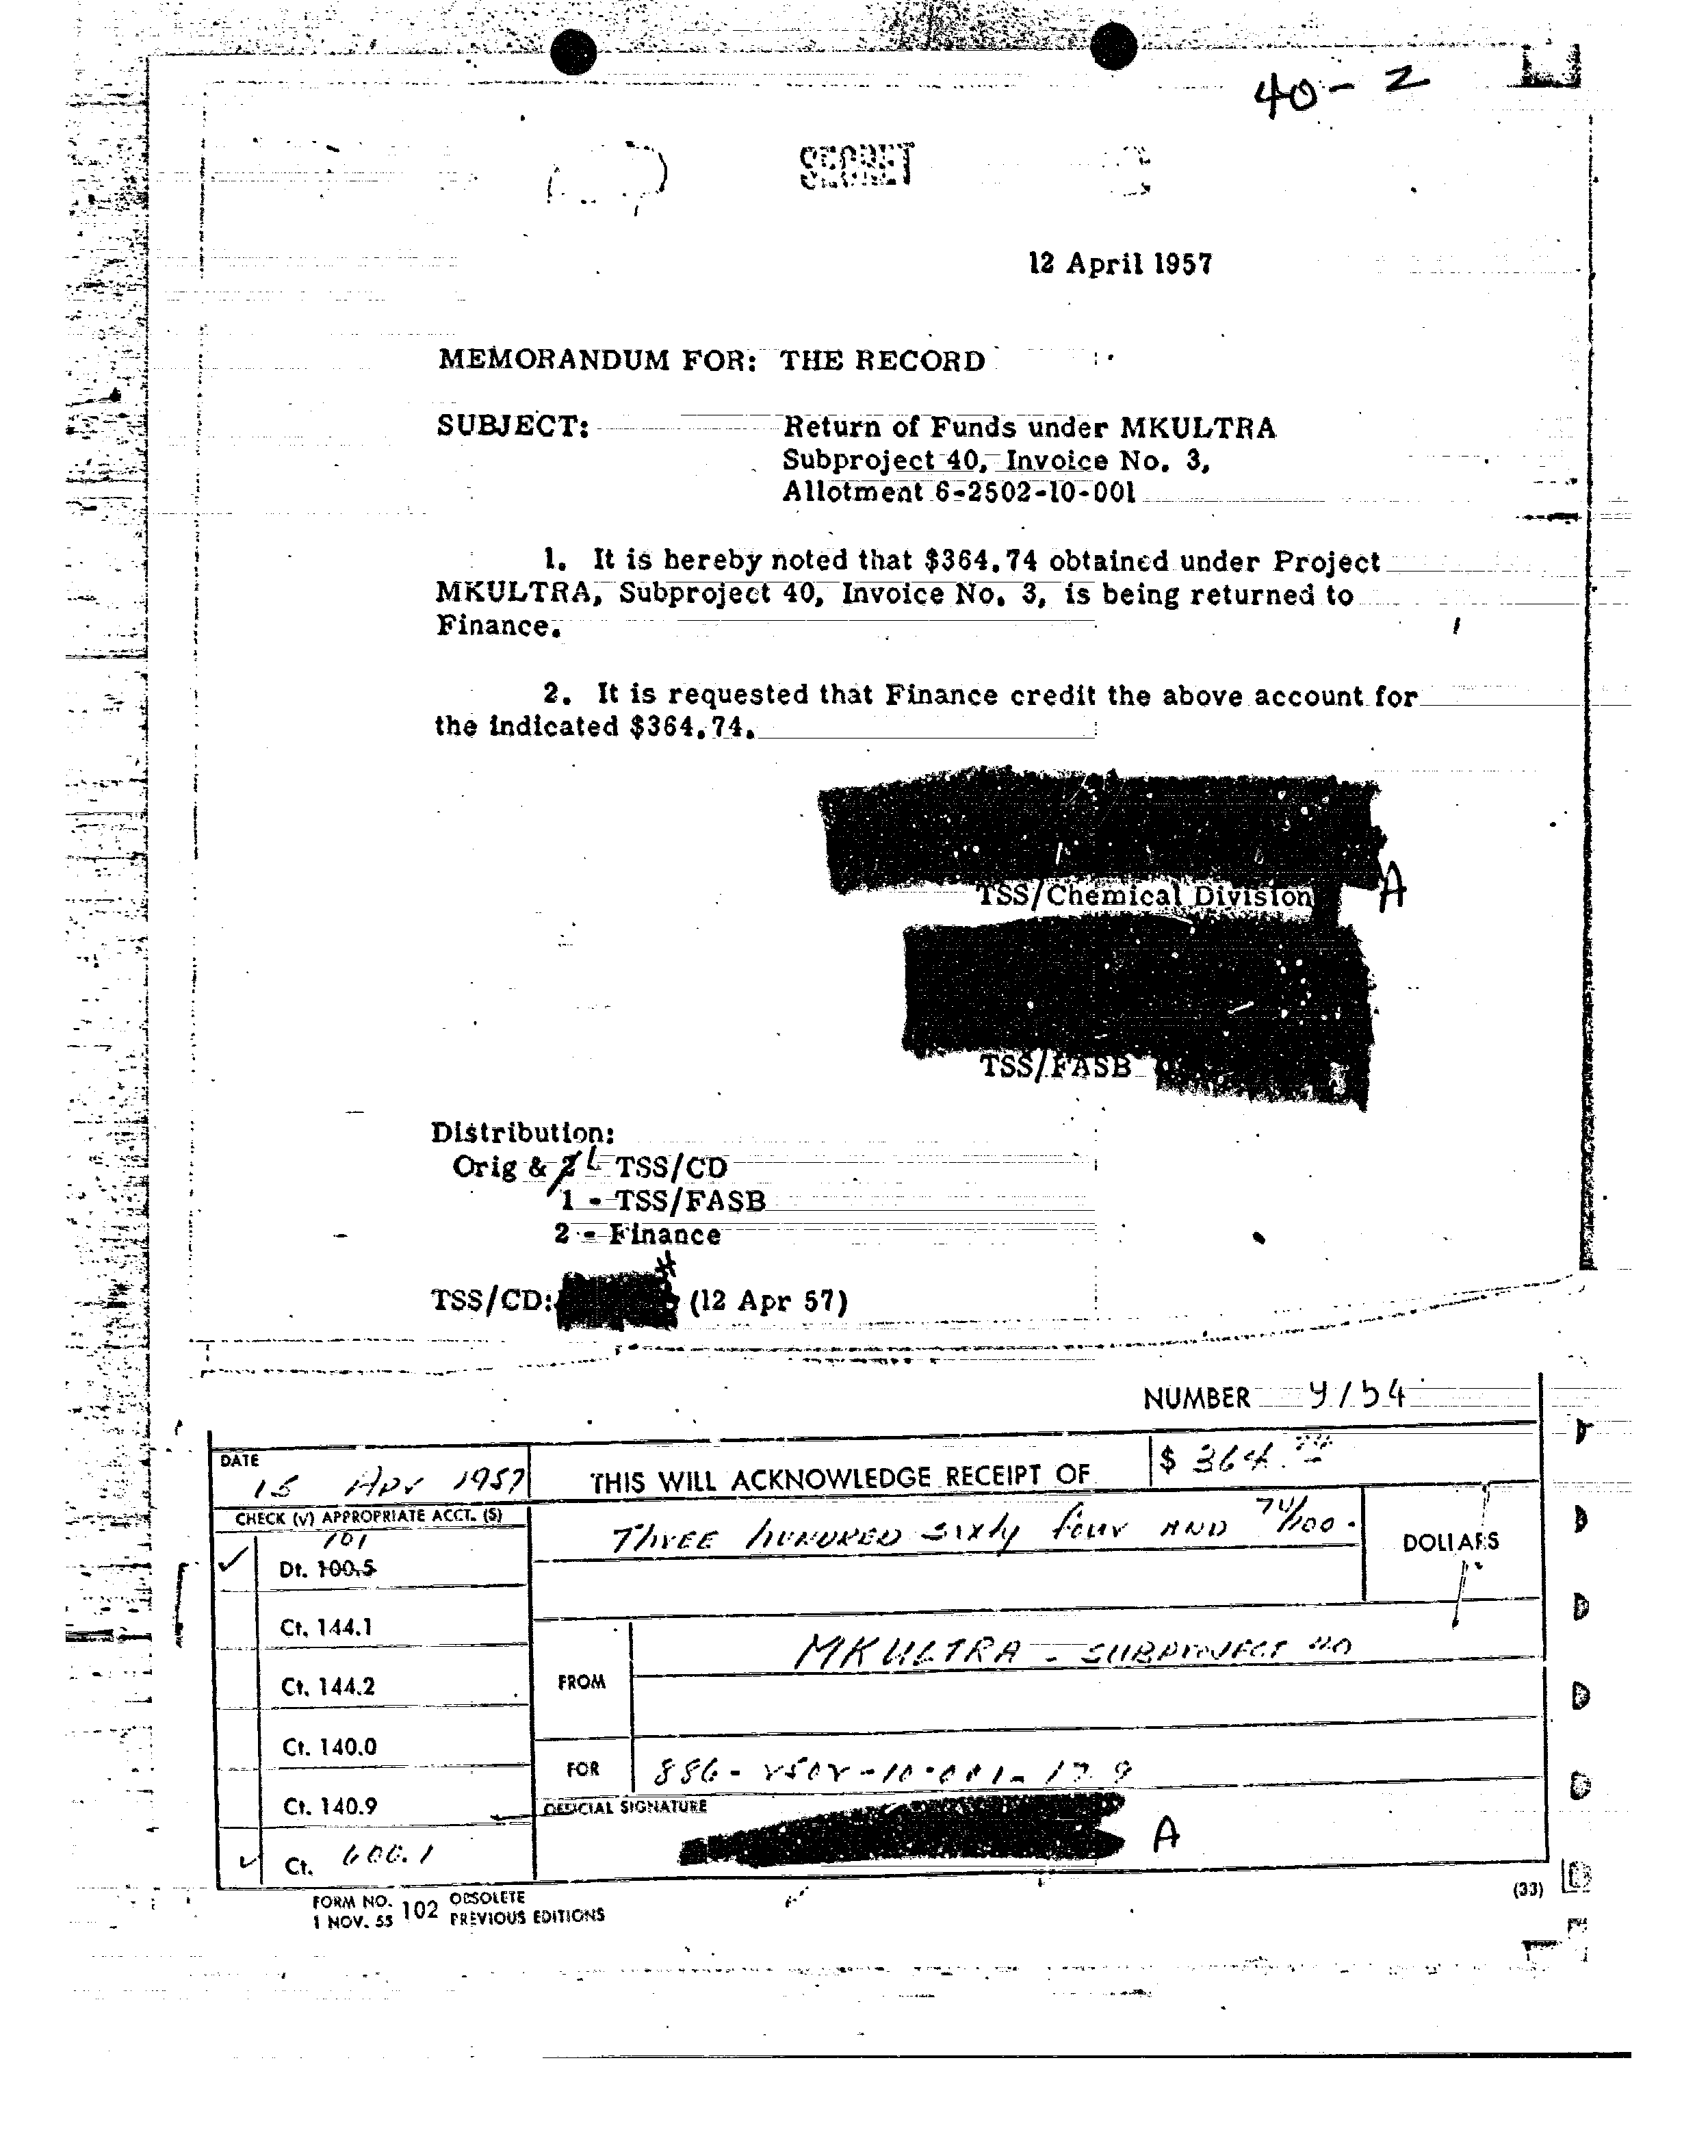 40-2
SECRET
12 April 1957
MEMORANDUM FOR: THE RECORD
SUBJECT: Return of Funds under MKULTRA
Subproject 40, Invoice No. 3,
Allotment 6-2502-10-001
1. It is hereby noted that $364.74 obtained under Project
MKULTRA, Subproject 40, Invoice No. 3, is being returned to
Finance.
2. It is requested that Finance credit the above account for
the indicated $364.74.
TSS/Chemical Division
A
TSS/FASB
Distribution:
Orig & 2 TSS/CD
1 - TSS/FASB
2 - Finance
TSS/CD: (12 Apr 57)
NUMBER 9154
DATE
15 Apr 1957
THIS WILL ACKNOWLEDGE RECEIPT OF $ 364.74
CHECK (v) APPROPRIATE ACCT. (S)
101
✓ Dt. 100.5
Three hundred sixty four AND 74/100.
DOLLARS
Ct. 144.1
Ct. 144.2
FROM MKULTRA - SUBPROJECT 40
Ct. 140.0
FOR
Ct. 140.9
OFFICIAL SIGNATURE
A
✓ Ct. 600.1
FORM NO. 102 OBSOLETE
1 NOV. 55 PREVIOUS EDITIONS
(33)